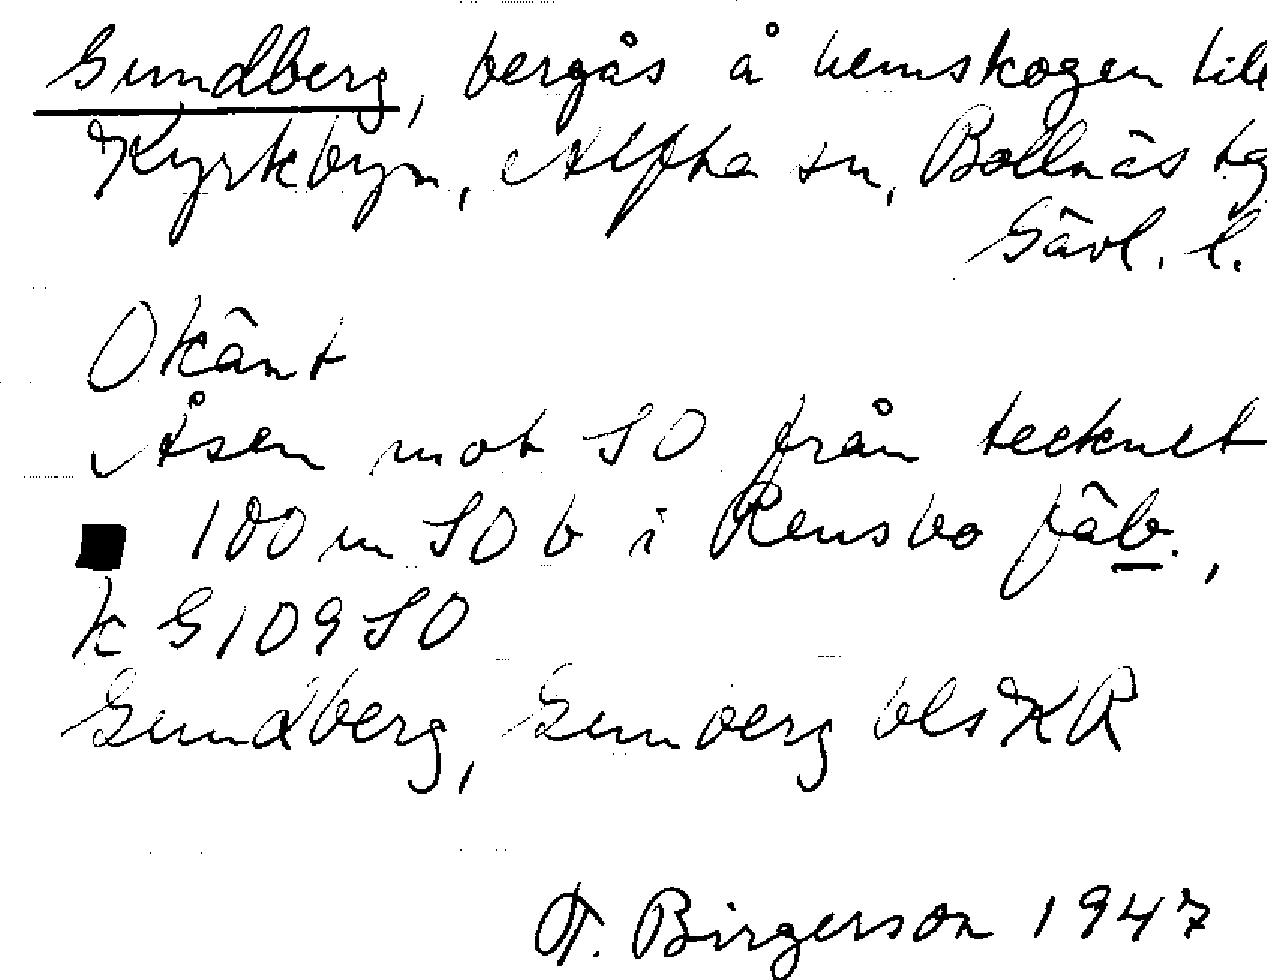 Gundberg, bergås å hemskogen till
Kyrkbyn, Alfta sn, Bollnäs tg
Gävl. l.
Okänt
Åsen mot SO från tecknet
■ 100 m SO b i Rensbo fäb.,
k G 109 SO
Gundberg, Gunberg bls KR
T. Birgerson 1947